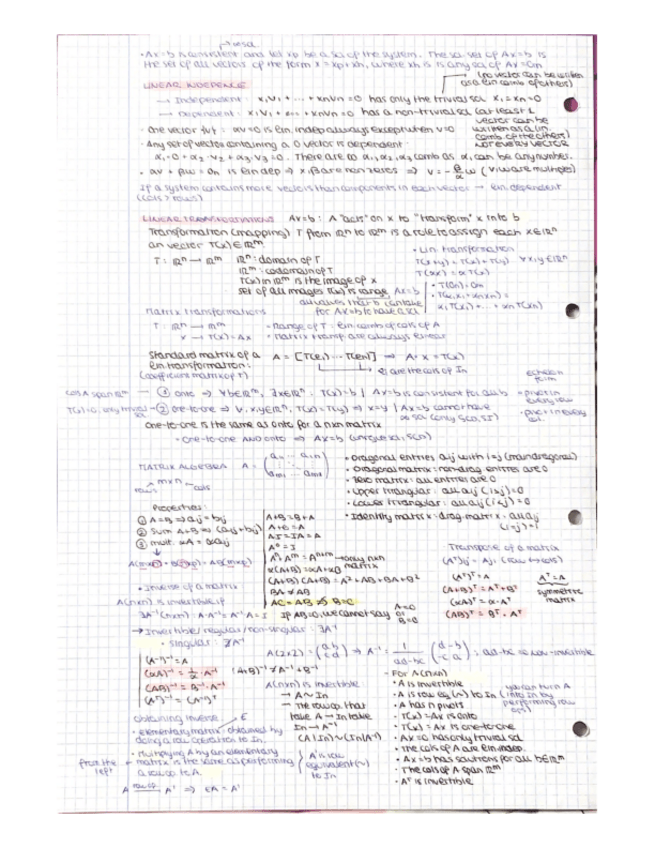 · Ax=b is consistent and let xp be a sol of the system. The sol set of Ax=b is
the set of all vectors of the form x = xp + xh, where xh is any sol of Ax=0m
LINEAR INDEPENCE
(no vector can be written as a lin comb of others)
→ Independent: x1v1 + ... + xnvn = 0 has only the trivial sol x1=xn=0
→ Dependent: x1v1 + ... + xnvn = 0 has a non-trivial sol (at least 1 vector can be written as a lin. comb of the others) NOT EVERY VECTOR
· One vector {v}: αv=0 is lin. indep always except when v=0
· Any set of vectors containing a 0 vector is dependent:
α1·0 + α2·v2 + α3·v3 = 0. There are ∞ α1, α2, α3 comb as α1 can be any number.
· αv + βw = 0n is lin dep ⇒ α, β are non zeros ⇒ v = -β/α w (v, w are multiples)
If a system contains more vectors than components in each vector → lin. dependent
(cols > rows)
LINEAR TRANSFORMATIONS Ax=b: A "acts" on x to "transform" x into b
Transformation (mapping) T from ℝn to ℝm is a rule to assign each x∈ℝn
an vector T(x)∈ℝm
T: ℝn → ℝm ℝn: domain of T
ℝm: codomain of T
T(x) in ℝm is the image of x
set of all images T(x) is range
all values that b can take for Ax=b to have a sol
· Lin transformation
T(x+y) = T(x)+T(y) ∀x,y∈ℝn
T(αx) = αT(x)
· T(0n) = 0m
Matrix transformations
T: ℝn → ℝm · Range of T: lin. comb of cols of A
x → T(x)=Ax · Matrix transf. are always linear
Standard matrix of a A = [T(e1) ... T(en)] ⇒ A·x = T(x)
lin transformation: ei are the cols of In
(coefficient matrix of T)
echelon form
cols A span ℝm — ① onto ⇒ ∀b∈ℝm, ∃x∈ℝn. T(x)=b | Ax=b is consistent for all b · pivot in every row
T(x)=0, only trivial sol — ② one-to-one ⇒ ∀x,y∈ℝn, T(x)=T(y) ⇒ x=y | Ax=b cannot have ∞ sol (only SCD, SI) · pivot in every col.
One-to-one is the same as onto for a nxn matrix
· One-to-one AND onto ⇒ Ax=b (unique sol, SCD)
MATRIX ALGEBRA A = (a11 ... a1n
am1 ... amn)
mxn
rows cols
· Diagonal entries aij with i=j (main diagonal)
· Diagonal matrix: non-diag. entries are 0
· Zero matrix: all entries are 0
· Upper triangular: all aij (i>j)=0
· Lower triangular: all aij (i<j)=0
· Identity matrix: diag. matrix: all aij (i=j)=1
Properties:
① A=B ⇒ aij=bij
② Sum A+B ⇒ (aij+bij)
③ mult. αA = ααij
A(mxn)·B(nxp)=AB(mxp)
A+B=B+A
A+0=A
AI=IA=A
A⁰=I
Aⁿ·Aᵐ=Aⁿ⁺ᵐ → only nxn matrix
α(A+B)=αA+αB
(A+B)(A+B)=A²+AB+BA+B²
BA≠AB
AC=AB ⇏ B=C
If AB=0, we cannot say A=0 or B=0
Transpose of a matrix
(Aᵀ)ij = Aji (row ↔ cols)
(Aᵀ)ᵀ=A
(A+B)ᵀ=Aᵀ+Bᵀ
(αA)ᵀ=α·Aᵀ
(AB)ᵀ=Bᵀ·Aᵀ
Aᵀ=A
symmetric matrix
· Inverse of a matrix
A(nxn) is invertible if
∃A⁻¹(nxn): A·A⁻¹=A⁻¹A=I
→ Invertible/regular/non-singular: ∃A⁻¹
· Singular: ∄A⁻¹
A(2x2) = (a b c d) ⇒ A⁻¹ = 1/(ad-bc) (d -b -c a); ad-bc=0 → non-invertible
(A⁻¹)⁻¹=A
(αA)⁻¹=1/α·A⁻¹
(AB)⁻¹=B⁻¹·A⁻¹
(Aᵀ)⁻¹=(A⁻¹)ᵀ
(A+B)⁻¹≠A⁻¹+B⁻¹
A(nxn) is invertible
→ A~In
→ The row op. that take A→In take In→A⁻¹
(A|In)~(In|A⁻¹)
· For A(nxn)
· A is invertible
· A is row eq(~) to In (you can turn A into In by performing row ops)
· A has n pivots
· T(x)=Ax is onto
· T(x)=Ax is one-to-one
· Ax=0 has only trivial sol
· The cols of A are lin. indep.
· Ax=b has solutions for all b∈ℝm
· The cols of A span ℝm
· Aᵀ is invertible
Obtaining inverse E
· elementary matrix: obtained by
doing a row operation to In.
from the left
· multiplying A by an elementary
matrix is the same as performing
a row op to A.
A' is row equivalent(~) to In
A row op→ A' ⇒ EA=A'